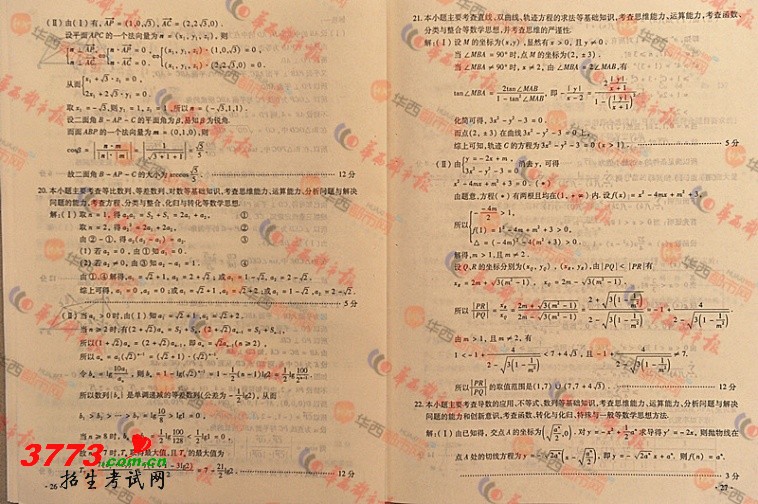 (Ⅱ)由(Ⅰ)有, AP = (1,0,√3), AC = (2,2√3,0).
设平面 APC 的一个法向量为 n = (x₁, y₁, z₁), 则
从而
取 x₁ = -√3, 则 y₁ = 1, z₁ = 1, 所以 n = (-√3,1,1).
设二面角 B - AP - C 的平面角为 β, 易知 β 为锐角.
而面 ABP 的一个法向量为 m = (0,1,0), 则
cosβ = |n·m / |n|·|m|| = |1/√(3+1+1)| = √5/5.
故二面角 B - AP - C 的大小为 arccos √5/5. 12 分
20. 本小题主要考查等比数列、等差数列、对数等基础知识, 考查思维能力、运算能力、分析问题与解决
问题的能力, 考查方程、分类与整合、化归与转化等数学思想.
解: (Ⅰ)取 n = 1, 得 a₂a₁ = S₂ + S₁ = 2a₁ + a₂, ①
取 n = 2, 得 a₂² = 2a₁ + 2a₂, ②
由② - ①, 得 a₂(a₂ - a₁) = a₂. ③
(1)若 a₂ = 0, 由①知 a₁ = 0.
(2)若 a₂≠0, 由③知 a₂ - a₁ = 1. ④
由①、④解得, a₁ = √2 + 1, a₂ = 2 + √2; 或 a₁ = 1 - √2, a₂ = 2 - √2.
综上可得, a₁ = 0, a₂ = 0; 或 a₁ = √2 + 1, a₂ = √2 + 2; 或 a₁ = 1 - √2, a₂ = 2 - √2.
5 分
(Ⅱ)当 a₁ > 0 时, 由(Ⅰ)知 a₁ = √2 + 1, a₂ = √2 + 2.
当 n≥2 时, 有(2 + √2)aₙ = S₂ + Sₙ, (2 + √2)aₙ₋₁ = S₂ + Sₙ₋₁,
所以(1 + √2)aₙ = (2 + √2)aₙ₋₁, 即 aₙ = √2aₙ₋₁(n≥2),
所以 aₙ = a₁(√2)ⁿ⁻¹ = (√2 + 1)·(√2)ⁿ⁻¹.
令 bₙ = lg 10a₁/aₙ, 则 bₙ = 1 - lg(√2)ⁿ⁻¹ = 1 - 1/2(n - 1)lg2 = 1/2 lg 100/2ⁿ⁻¹.
所以数列{bₙ}是单调递减的等差数列(公差为 - 1/2 lg2), 从而
b₁ > b₂ > … > b₇ = lg 10/8 > lg1 = 0,
当 n≥8 时, bₙ ≤ b₈ = 1/2 lg 100/128 < 1/2 lg1 = 0,
故 n = 7 时, Tₙ 取得最大值, 且 Tₙ 的最大值为
= 7 - 21/2 lg2. 12 分
· 26 ·
21. 本小题主要考查直线、双曲线、轨迹方程的求法等基础知识, 考查思维能力、运算能力, 考查函数、
分类与整合等数学思想, 并考查思维的严谨性.
解: (Ⅰ)设 M 的坐标为(x,y), 显然有 x > 0, 且 y≠0.
当 ∠MBA = 90° 时, 点 M 的坐标为(2, ±3).
当 ∠MBA ≠ 90° 时, x ≠ 2, 由 ∠MBA = 2∠MAB, 有
tan∠MBA = 2tan∠MAB / (1 - tan²∠MAB), 即 - |y|/(x-2) = 2·|y|/(x+1) / (1 - (|y|/(x+1))²)
化简可得, 3x² - y² - 3 = 0.
而点(2, ±3)在曲线 3x² - y² - 3 = 0 上,
综上可知, 轨迹 C 的方程为 3x² - y² - 3 = 0 (x > 1). 5 分
(Ⅱ)由 { y = -2x + m, 3x² - y² - 3 = 0 消去 y, 可得
x² - 4mx + m² + 3 = 0. (*)
由题意, 方程(*)有两根且均在(1, +∞)内, 设 f(x) = x² - 4mx + m² + 3,
所以 { - (-4m)/2 > 1, f(1) = 1² - 4m + m² + 3 > 0, △ = (-4m)² - 4(m² + 3) > 0.
解得, m > 1, 且 m≠2.
设 Q、R 的坐标分别为(x_Q, y_Q), (x_R, y_R), 由 |PQ| < |PR| 有
x_R = 2m + √(3(m² - 1)), x_Q = 2m - √(3(m² - 1)).
所以 |PR|/|PQ| = x_R/x_Q = (2m + √(3(m² - 1)))/(2m - √(3(m² - 1))) = (2 + √(3(1 - 1/m²)))/(2 - √(3(1 - 1/m²))) = -1 + 4/(2 - √(3(1 - 1/m²)))
由 m > 1, 且 m≠2, 有
1 < -1 + 4/(2 - √(3(1 - 1/m²))) < 7 + 4√3, 且 -1 + 4/(2 - √(3(1 - 1/m²))) ≠ 7.
所以 |PR|/|PQ| 的取值范围是(1,7)∪(7,7 + 4√3). 12 分
22. 本小题主要考查导数的应用、不等式、数列等基础知识, 考查思维能力、运算能力、分析问题与解决
问题的能力和创新意识, 考查函数、转化与化归、特殊与一般等数学思想方法.
解: (Ⅰ)由已知得, 交点 A 的坐标为(√(aⁿ/2), 0). 对 y = -x² + 1/2 aⁿ 求导得 y′ = -2x, 则抛物线在
点 A 处的切线方程为 y = -√(2aⁿ)(x - √(aⁿ/2)), 即 y = -√(2aⁿ)x + aⁿ. 则 f(n) = aⁿ.
3 分
· 27 ·
3773.com.cn
招生考试网
华西都市报
华西新闻网